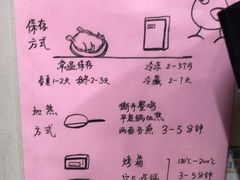 保存
方式
常温保存
春夏1-2天 秋冬2-3天
冷冻 2-3个月
冷藏 2-7天
加热
方式
撕开整鸡
平底锅加热
两面各煎 3-5分钟
烤箱 180℃-200℃
3-5分钟